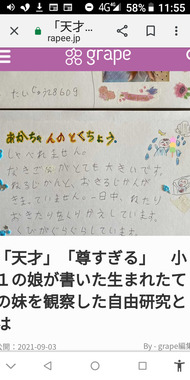 4G
58%
11:55
「天才...
rapee.jp
grape
あかちゃんのとくちょう。
しゃべれません。
なきごえがとても大きいです。
ねるじかんと、おきるじかんが
きまっていません。一日中、ねたり
おきたりをくりかえしています。
「天才」「尊すぎる」 小
1の娘が書いた生まれたて
の妹を観察した自由研究と
は
公開:2021-09-03
By - grape編集